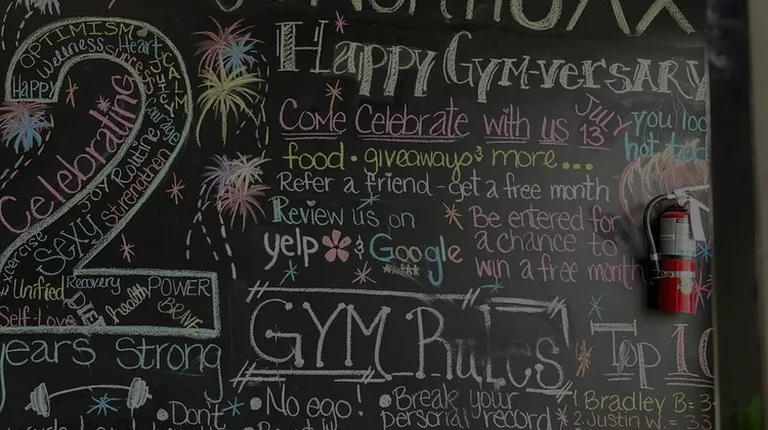 OPTIMISM
Wellness Heart
Happy
Courage
Celebrating
Joy Routine
Strengthen
Sexy
Exercise
Unified Recovery POWER
DIET health BRAVE
Self-Love
ears Strong
Happy Gym-versary
Come Celebrate with us July 13
you loo
hot tod
food • giveaways & more...
Refer a friend - get a free month
Review us on
yelp & Google
Be entered for
a chance to
win a free month
GYM Rules
Top 10
• Don't
• No ego!
• Break your
personal record
1. Bradley B = 3
2. Justin W. = 33